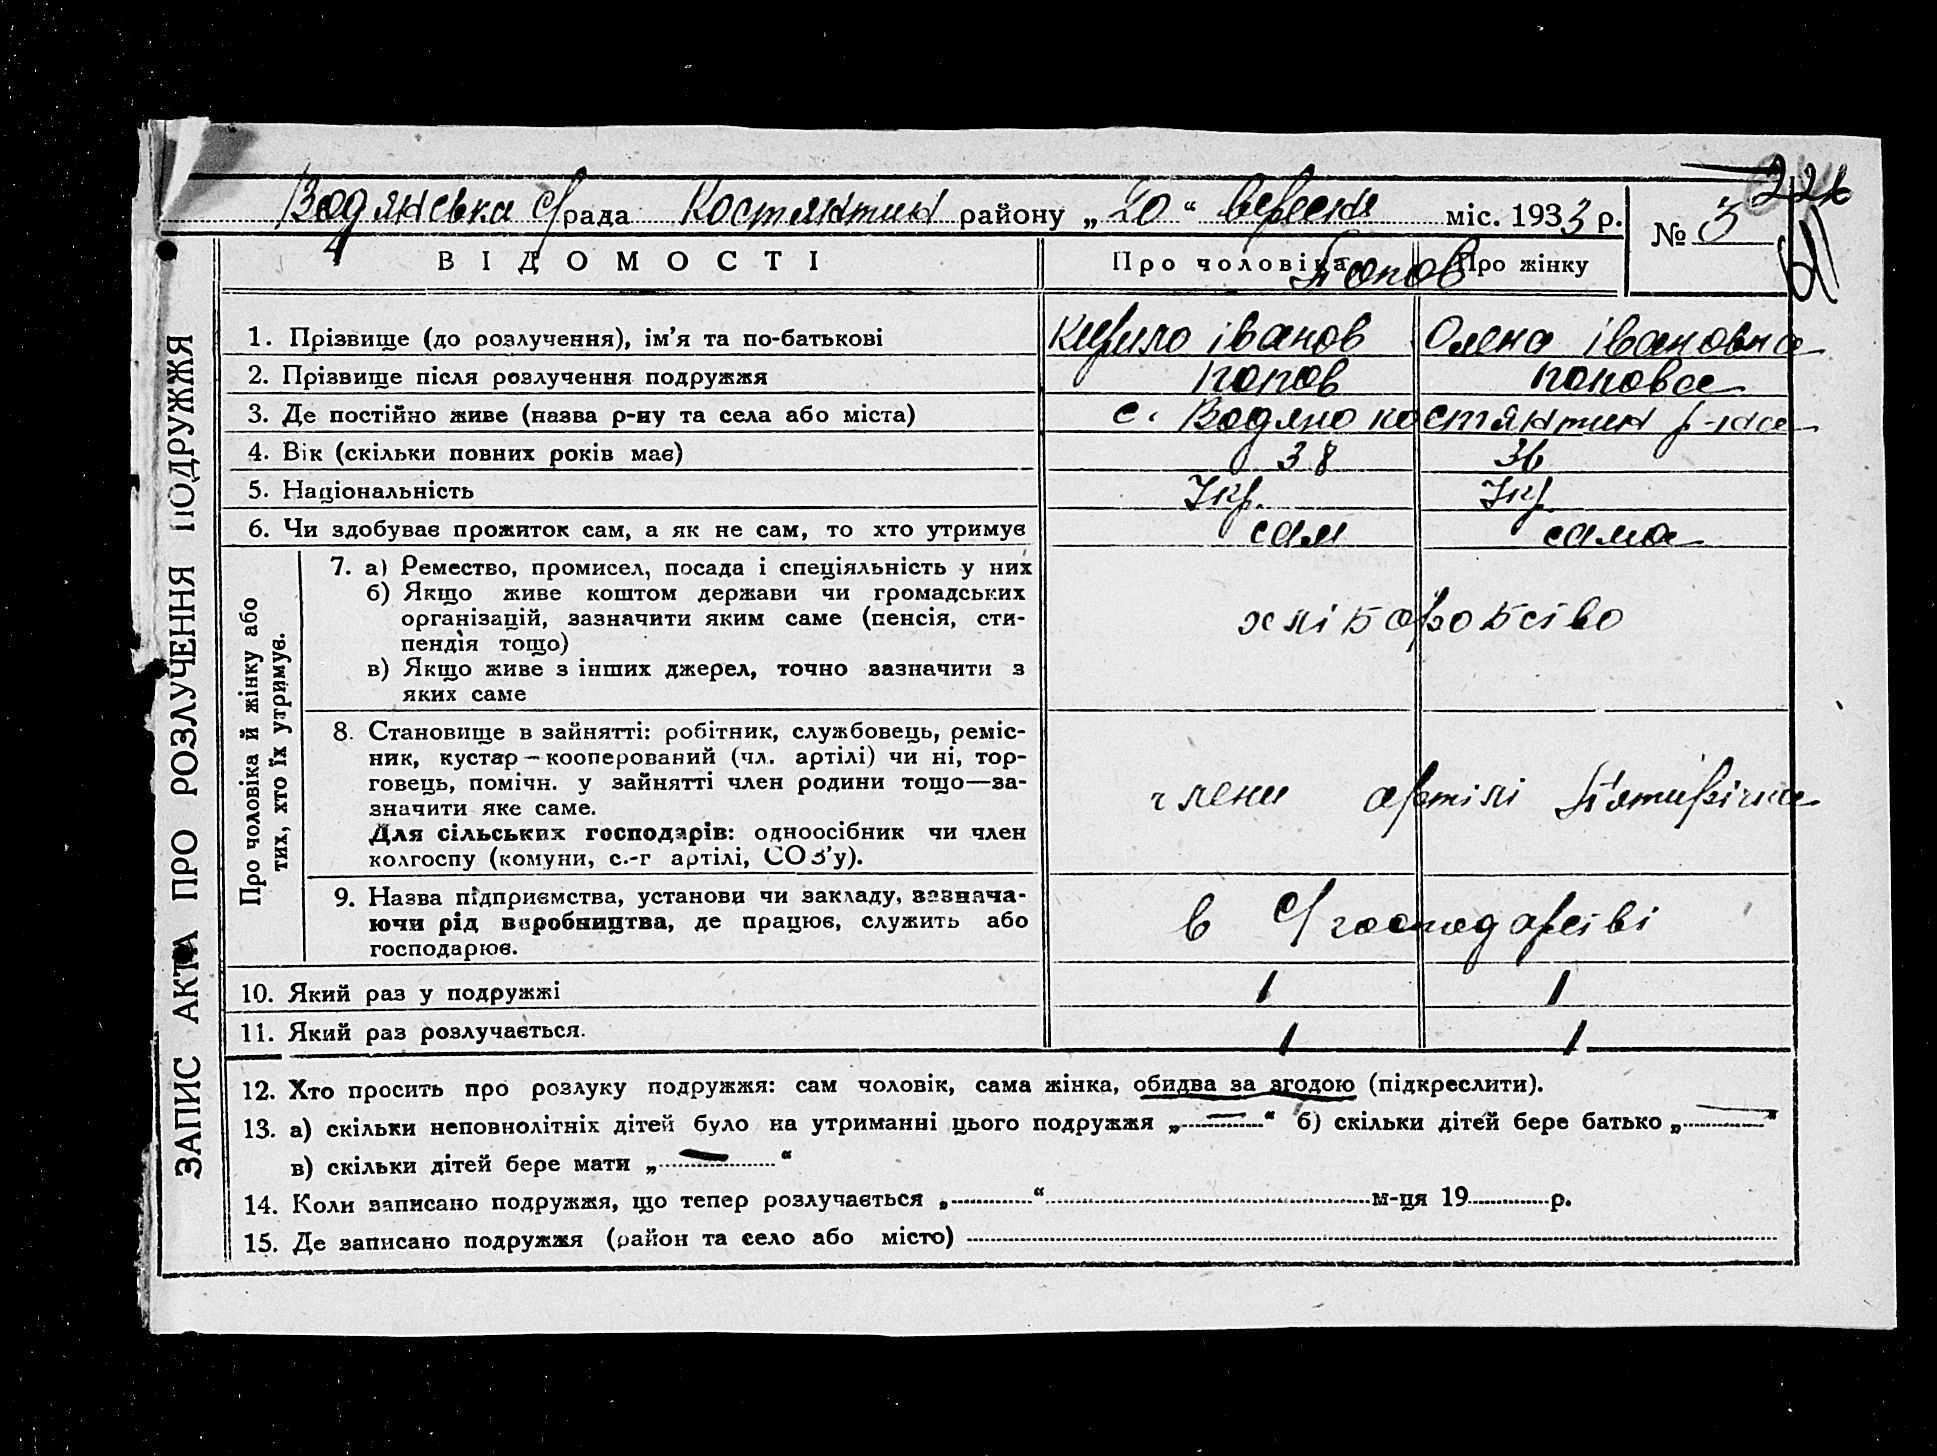 Водянська с/рада Костянтин району „20“ вересня міс. 1933 р.
№ 3
ЗАПИС АКТА ПРО РОЗЛУЧЕННЯ ПОДРУЖЖЯ
ВІДОМОСТІ Про чоловіка Про жінку
Попов
1. Прізвище (до розлучення), ім’я та по-батькові Кирило Іванов Олена Івановна
2. Прізвище після розлучення подружжя Попов Попова
3. Де постійно живе (назва р-ну та села або міста) с. Водяно Костянтин р-на
4. Вік (скільки повних років має) 38 36
5. Національність Укр. Укр.
6. Чи здобуває прожиток сам, а як не сам, то хто утримує сам сама
Про чоловіка й жінку або
тих, хто їх утримує.
7. а) Ремество, промисел, посада і спеціяльність у них
б) Якщо живе коштом держави чи громадських
організацій, зазначити яким саме (пенсія, сти-
пендія тощо)
в) Якщо живе з інших джерел, точно зазначити з
яких саме
хліборобсіво
8. Становище в зайнятті: робітник, службовець, реміс-
ник, кустар — кооперований (чл. артілі) чи ні, тор-
говець, помічн. у зайнятті член родини тощо—за-
значити яке саме.
Для сільських господарів: одноосібник чи член
колгоспу (комуни, с.-г артілі, СОЗ’у).
члени артілі Пятирічка
9. Назва підприємства, установи чи закладу, зазнача-
ючи рід виробництва, де працює, служить або
господарює.
в с/господарсіві
10. Який раз у подружжі 1 1
11. Який раз розлучається. 1 1
12. Хто просить про розлуку подружжя: сам чоловік, сама жінка, обидва за згодою (підкреслити).
13. а) скільки неповнолітніх дітей було на утриманні цього подружжя „—“ б) скільки дітей бере батько „—“
в) скільки дітей бере мати „—“
14. Коли записано подружжя, що тепер розлучається „......“ ...... м-ця 19...... р.
15. Де записано подружжя (район та село або місто)